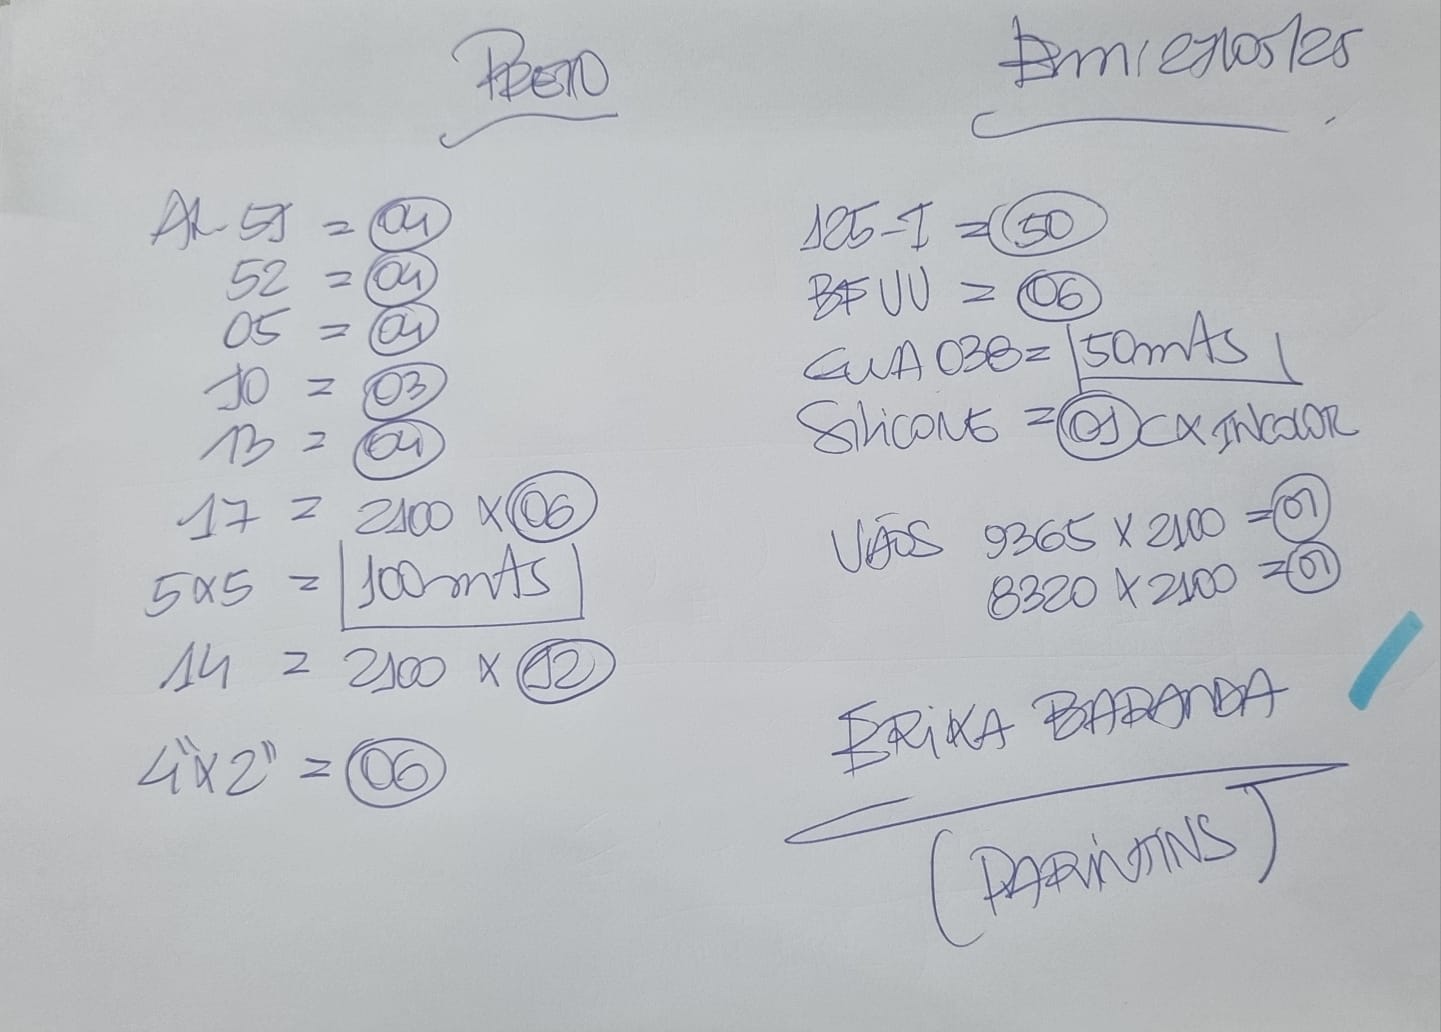 PRETO
27/05/25
AL 51 = 04
52 = 04
05 = 04
10 = 03
13 = 04
17 = 2100 x 06
5x5 = 100 mts
14 = 2100 x 12
4"x2" = 06
125-I = 50
BF UU = 06
038 = 50 mts
SiliCONE = 01 CX INCOLOR
VÃOS 9365 x 2100 = 01
8320 x 2100 = 01
ERiKA BARANDA
(PARINTINS)